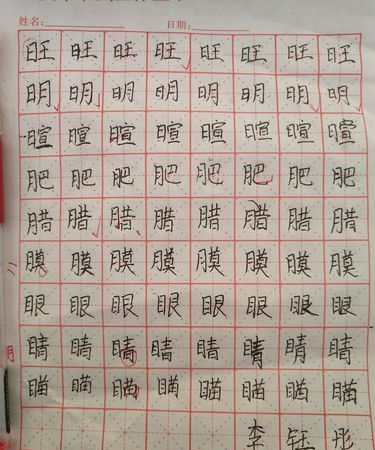 姓名: 日期:
旺 旺 旺 旺 旺 旺 旺 旺
明 明 明 明 明 明 明 明
暄 暄 暄 暄 暄 暄 暄 暄
肥 肥 肥 肥 肥 肥 肥 肥
腊 腊 腊 腊 腊 腊 腊 腊
膜 膜 膜 膜 膜 膜 膜 膜
眼 眼 眼 眼 眼 眼 眼 眼
睛 睛 睛 睛 睛 睛 睛 睛
瞄 瞄 瞄 瞄 瞄 瞄 瞄 瞄
李 钰 彤